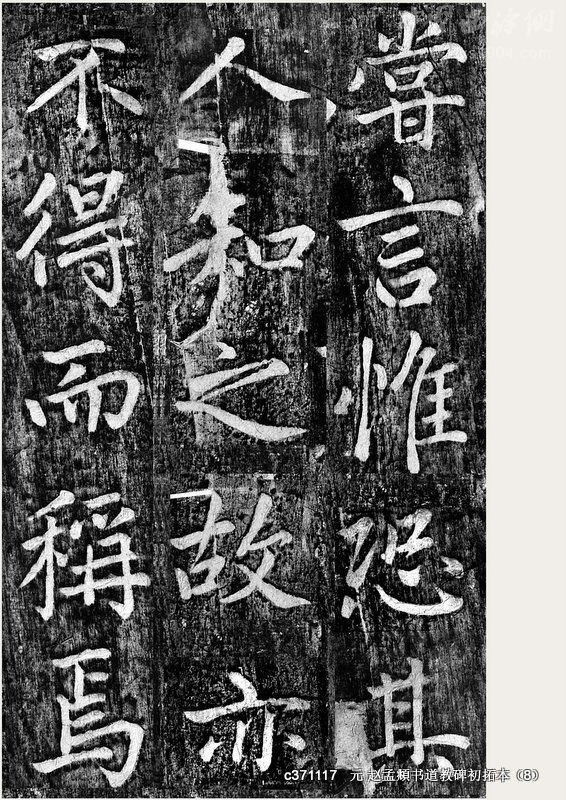 嘗言惟恐其
人知之故亦
不得而稱焉
c371117 元 赵孟頫书道教碑初拓本（8）